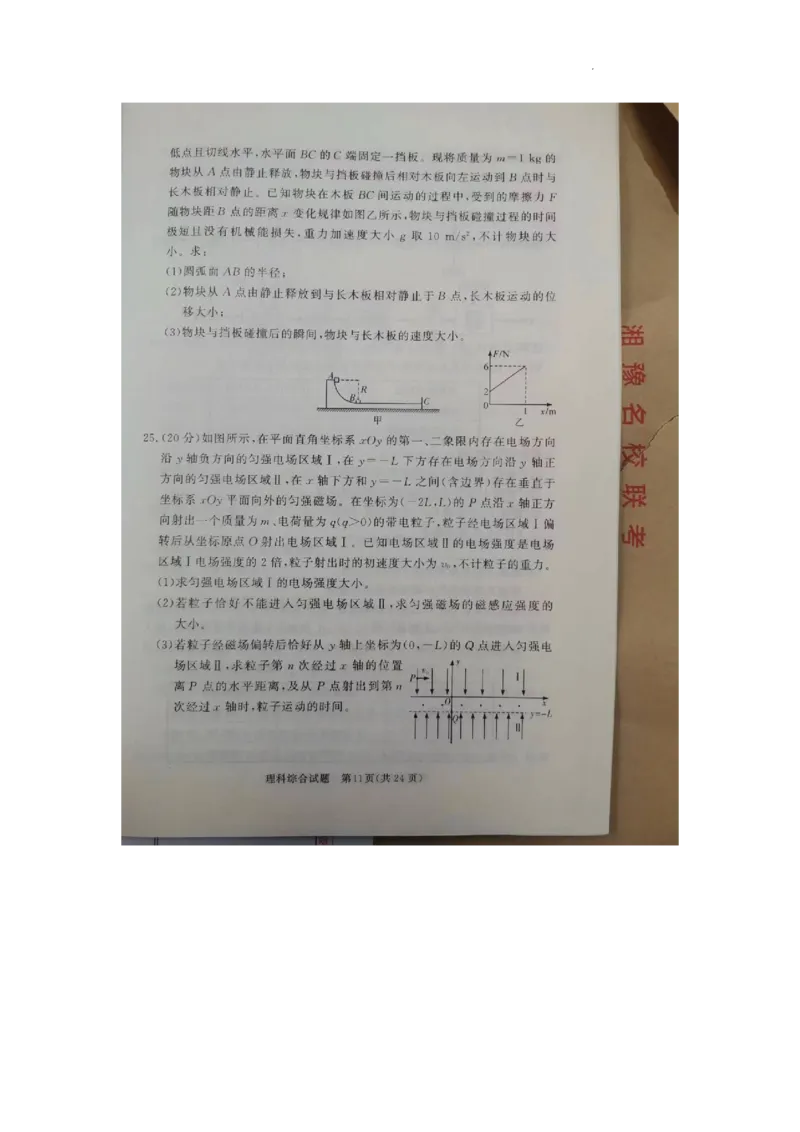 低点且切线水平,水平面 BC 的 C 端固定一挡板。现将质量为 m=1 kg 的
物块从 A 点由静止释放,物块与挡板碰撞后相对木板向左运动到 B 点时与
长木板相对静止。已知物块在木板 BC 间运动的过程中,受到的摩擦力 F
随物块距 B 点的距离 x 变化规律如图乙所示,物块与挡板碰撞过程的时间
极短且没有机械能损失,重力加速度大小 g 取 10 m/s²,不计物块的大
小。求:
(1)圆弧面 AB 的半径;
(2)物块从 A 点由静止释放到与长木板相对静止于 B 点,长木板运动的位
移大小;
(3)物块与挡板碰撞后的瞬间,物块与长木板的速度大小。
A
R
B
C
甲
F/N
6
2
0
1
x/m
乙
25.(20 分)如图所示,在平面直角坐标系 xOy 的第一、二象限内存在电场方向
沿 y 轴负方向的匀强电场区域Ⅰ,在 y=-L 下方存在电场方向沿 y 轴正
方向的匀强电场区域Ⅱ,在 x 轴下方和 y=-L 之间(含边界)存在垂直于
坐标系 xOy 平面向外的匀强磁场。在坐标为(-2L,L)的 P 点沿 x 轴正方
向射出一个质量为 m、电荷量为 q(q>0)的带电粒子,粒子经电场区域Ⅰ偏
转后从坐标原点 O 射出电场区域Ⅰ。已知电场区域Ⅱ的电场强度是电场
区域Ⅰ电场强度的 2 倍,粒子射出时的初速度大小为 v₀,不计粒子的重力。
(1)求匀强电场区域Ⅰ的电场强度大小。
(2)若粒子恰好不能进入匀强电场区域Ⅱ,求匀强磁场的磁感应强度的
大小。
(3)若粒子经磁场偏转后恰好从 y 轴上坐标为(0,-L)的 Q 点进入匀强电
场区域Ⅱ,求粒子第 n 次经过 x 轴的位置
离 P 点的水平距离,及从 P 点射出到第 n
次经过 x 轴时,粒子运动的时间。
y
P
v₀
Ⅰ
O
x
Q
y=-L
Ⅱ
理科综合试题 第11页(共24页)
湘豫名校联考